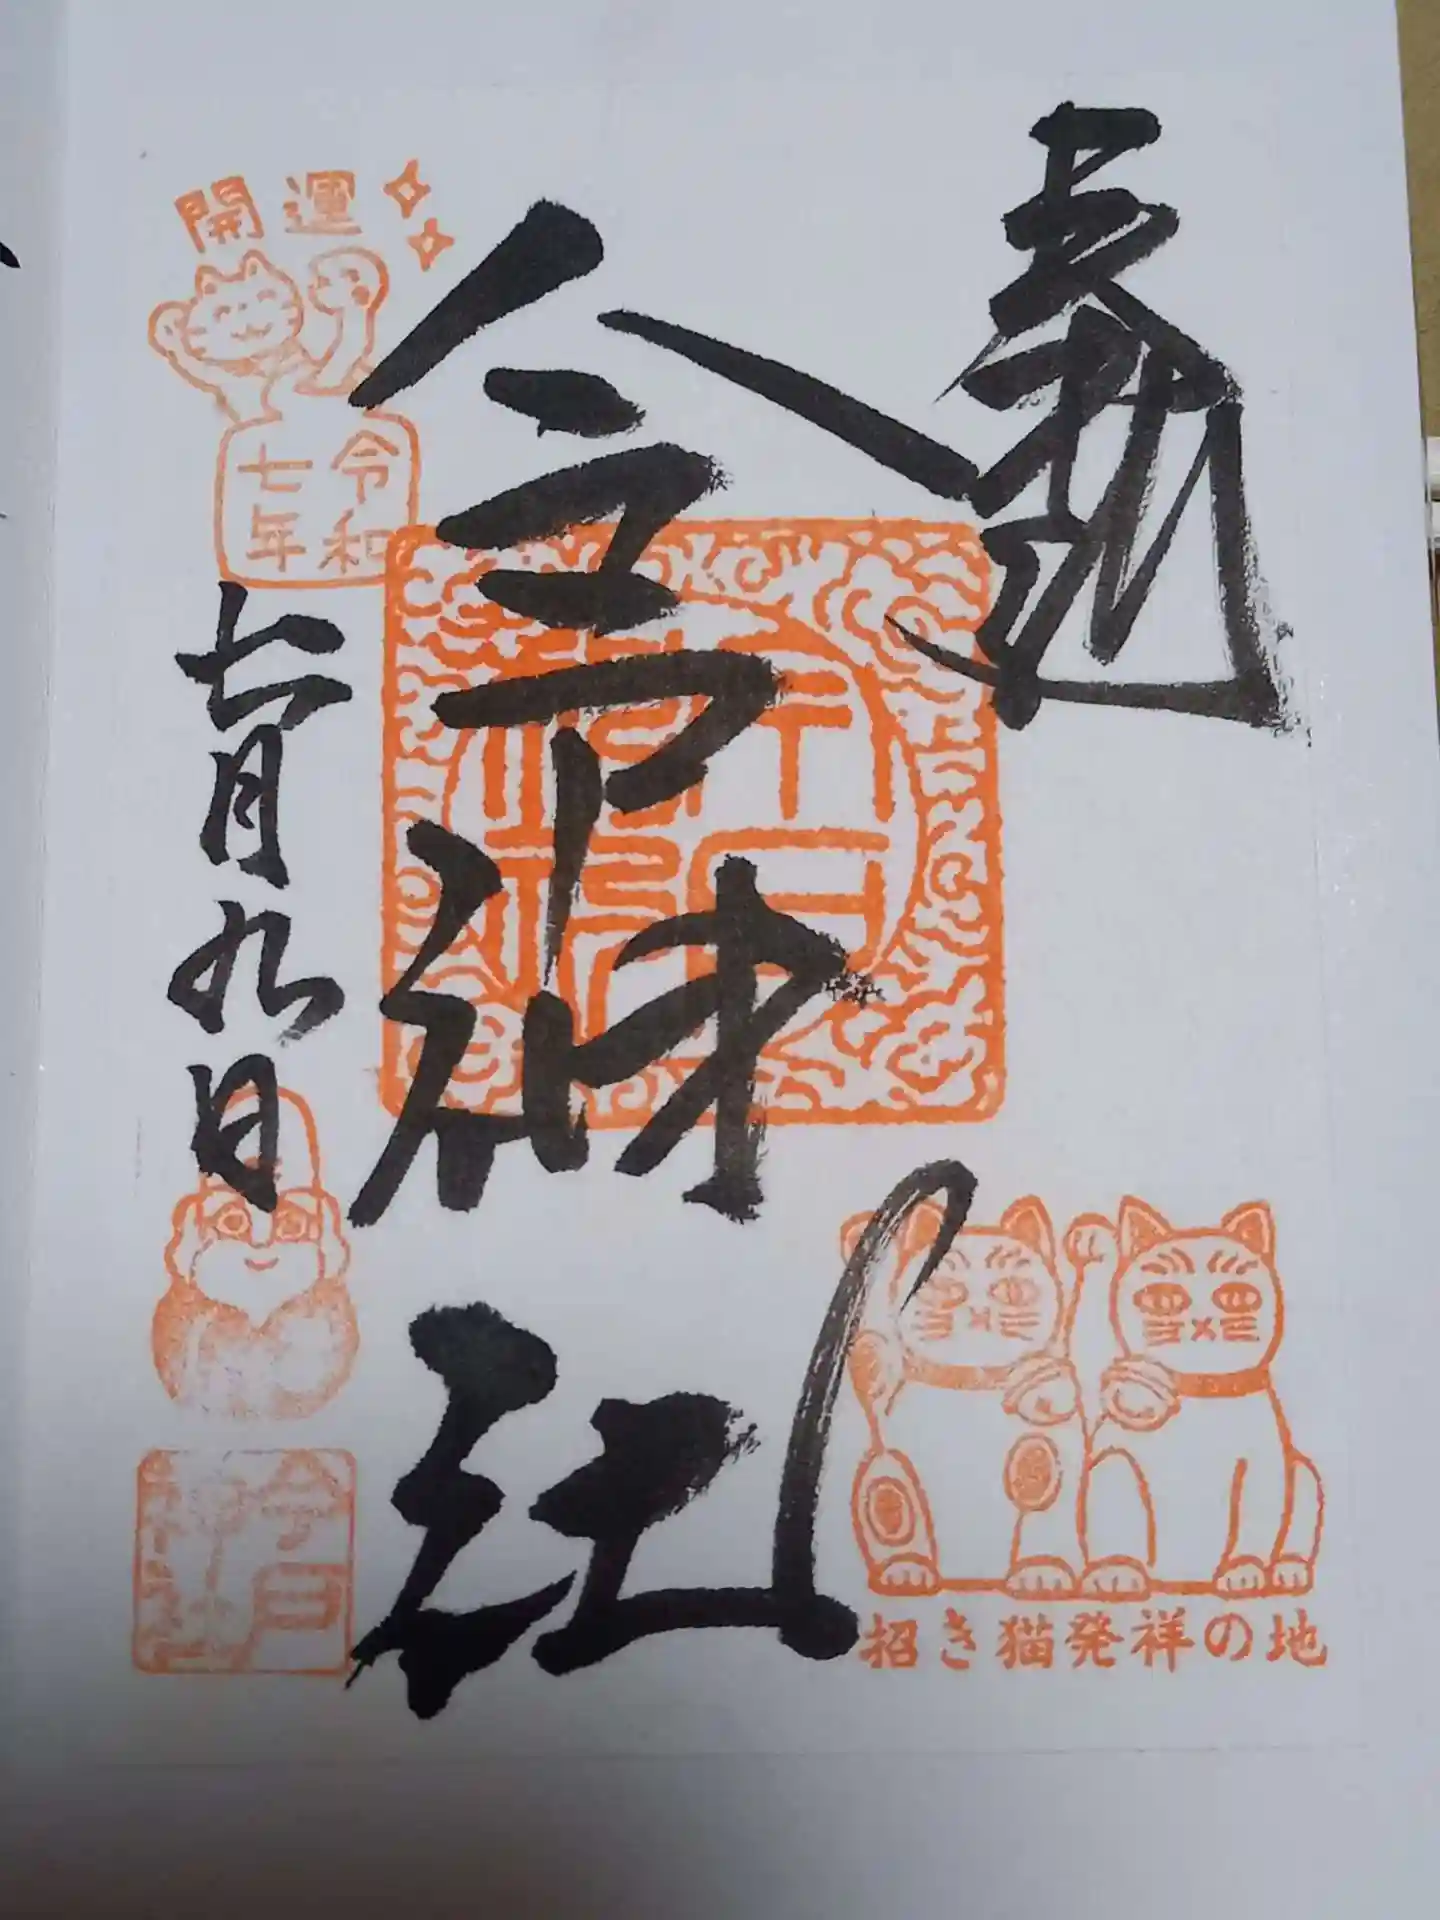 奉拝
今戸神社
開運
令和
七年
七月九日
今戸
神社
招き猫発祥の地